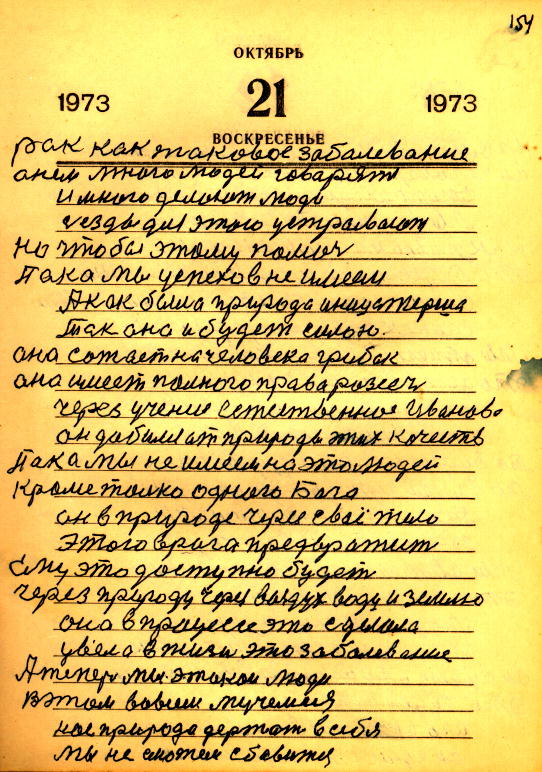 154
ОКТЯБРЬ
1973 21 1973
ВОСКРЕСЕНЬЕ
рак как таковое забалевание
анем много людей говарят
и много делают люди
съезды для этого устравают
но чтобы этому помоч
Пака мы успехов не имеем
А как была природа
Так она и будет силою
она сажает на человека грибок
она имеет полного права
через учение естественное Иванова
он добился от природы этих качеств
Пака мы не имеем на это людей
Кроме толко одного Бога
он в природе через своё тело
Этого врага предвратит
Ему это доступно будет
Через природу через воздух воду и землю
она в процессе это сделала
увела в жизи это забалевание
А тепер мы этакои люди
В этом вовсем мучемся
нас природа держат в себя
мы не сможем сбавится